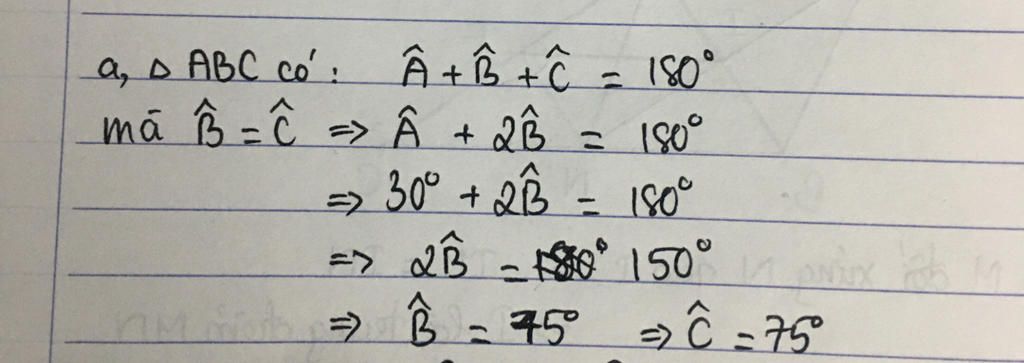 a, △ ABC có: Â + B̂ + Ĉ = 180°
mà B̂ = Ĉ => Â + 2B̂ = 180°
=> 30° + 2B̂ = 180°
=> 2B̂ = 150°
=> B̂ = 75° => Ĉ = 75°